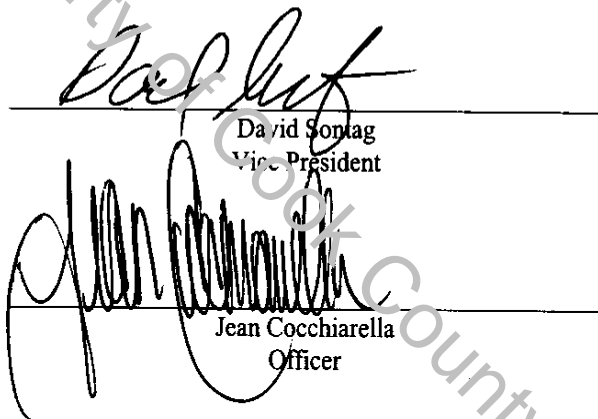 David Sontag
Vice President
Jean Cocchiarella
Officer
ty of Cook County